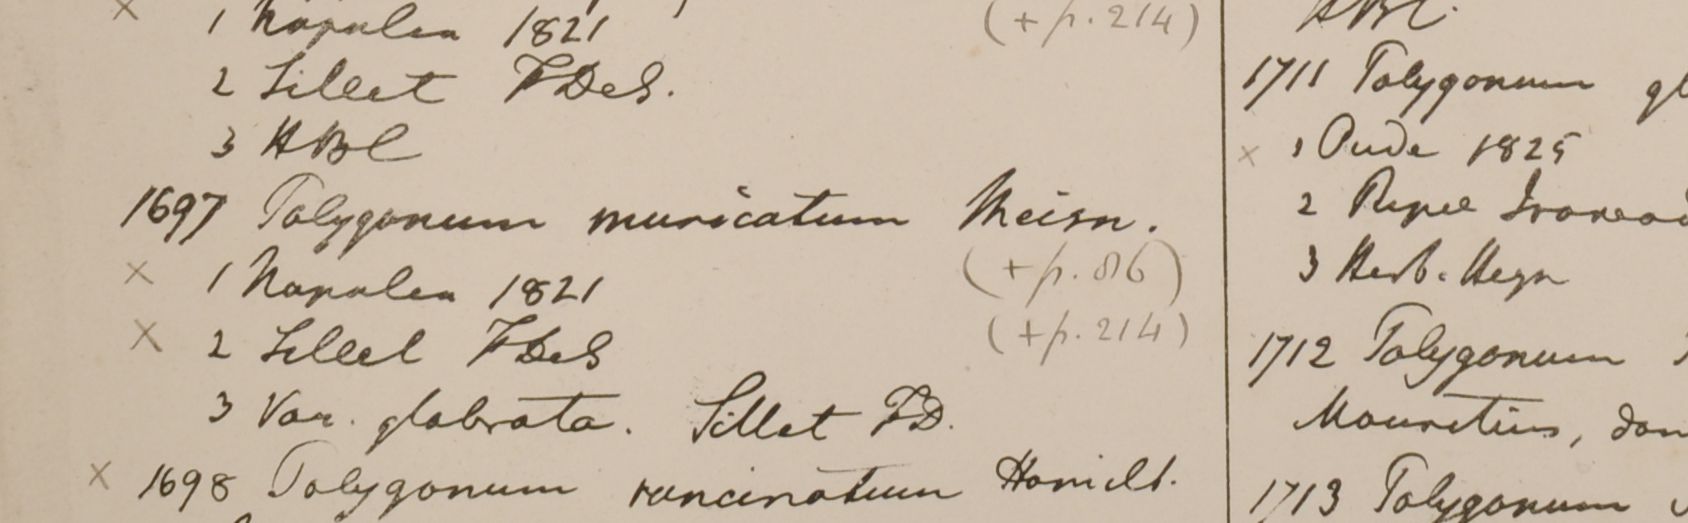 × 1 Napalea 1821 (+ p. 214)
2 Sillet FDeS.
3 HBC
1697 Polygonum muricatum Meisn.
× 1 Napalea 1821 (+ p. 86)
× 2 Sillet FDeS (+ p. 214)
3 Var. glabrata. Sillet FD.
× 1698 Polygonum runcinatum Hamilt.
HBC.
1711 Polygonum gl
× 1 Oude 1825
2 Ripae
3 Herb. Heyn
1712 Polygonum
Mauritius, don
1713 Polygonum